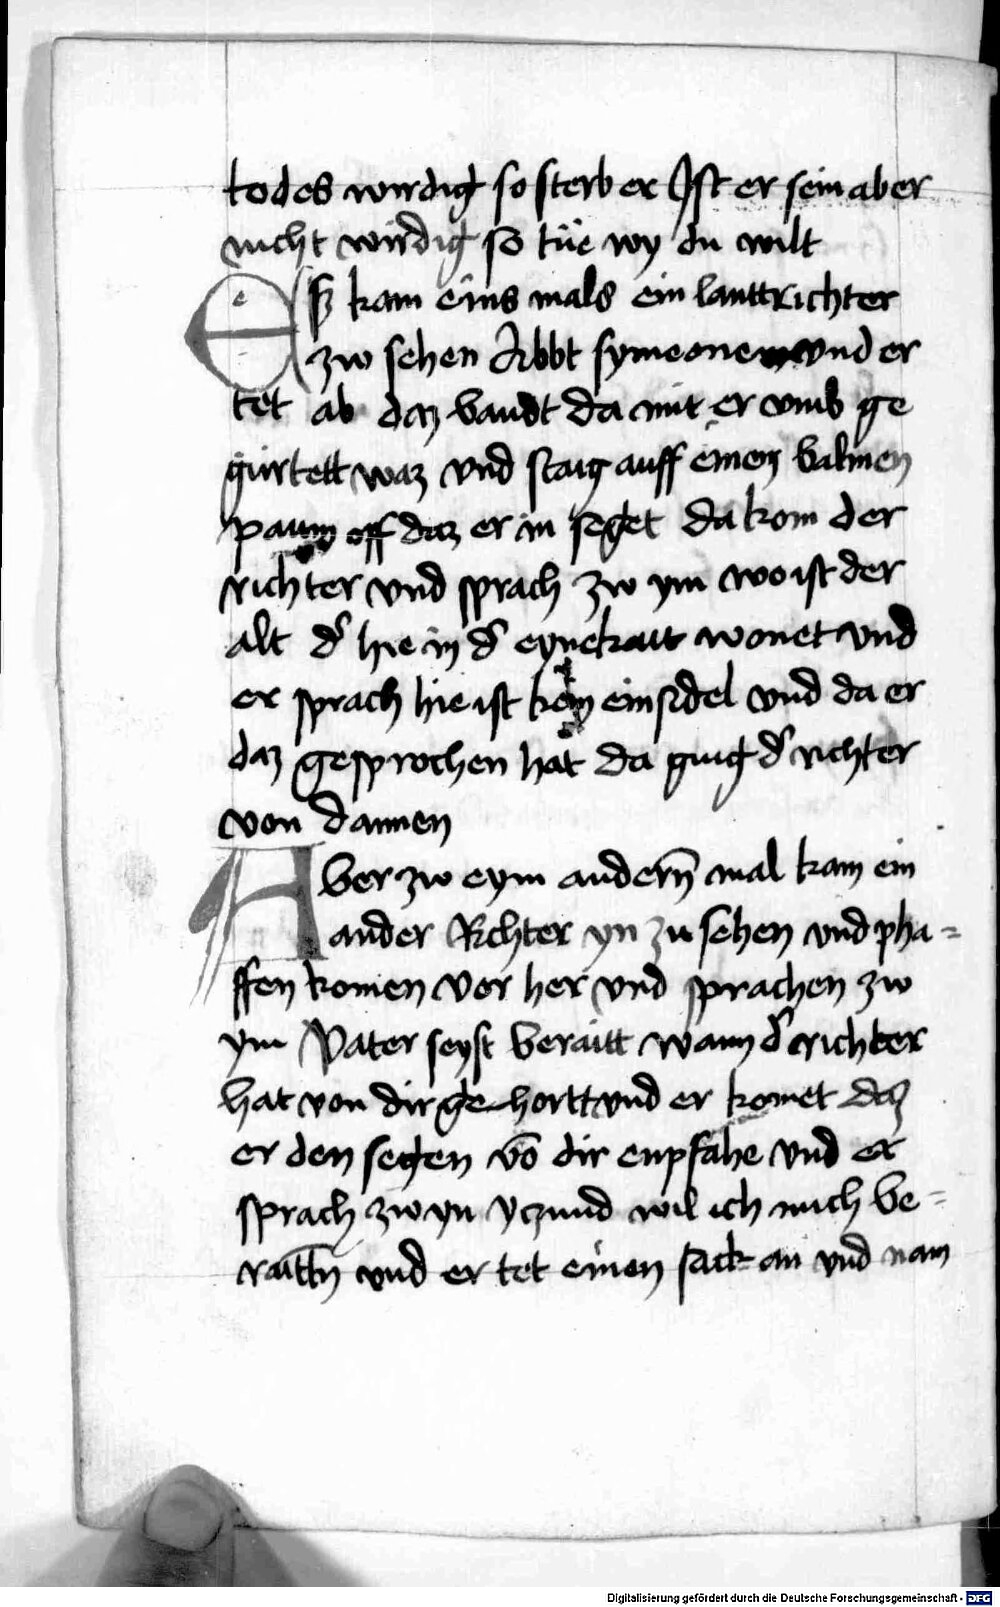 todes wirdig so sterb er Ist er sein aber
nicht wirdig so tüe wy du wilt
Esz kam eins mals ein lanttrichter
zw sehen Abbt symeonem vnd er
tet ab daz bandt da mit er vmb ge
gürtett waz vnd staig auff einen balmen
paum off daz er in seget da kom der
richter vnd sprach zw ym wo ist der
alt d' hie in d' eynekait wonet vnd
er sprach hie ist kein einsidel vnd da er
daz gesprochen hat da ging d' richter
von dannen
Aber zw eym andern̄ mal kam ein
ander Richter yn zu sehen vnd pha=
ffen komen vor her vnd sprachen zw
ym Vater seyst beraitt wann d' richter
hat von dir ge hortt vnd er komet daz
er den segen vō dir enpfahe vnd er
sprach zw yn yczund wil ich mich be=
raittn̄ vnd er tet einen sack an vnd nam
Digitalisierung gefördert durch die Deutsche Forschungsgemeinschaft - DFG